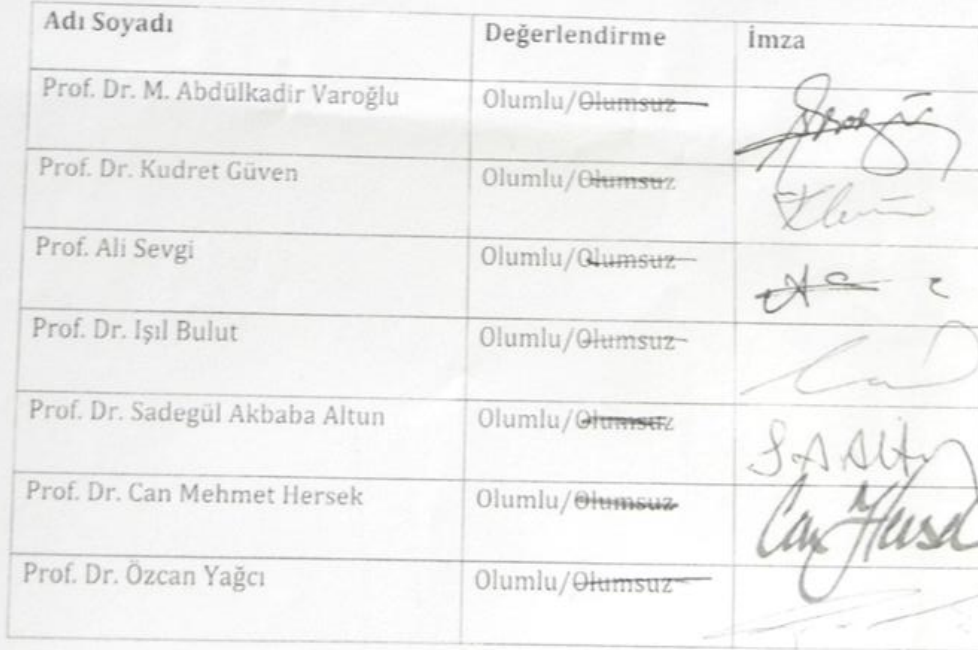 Adı Soyadı Değerlendirme İmza
Prof. Dr. M. Abdülkadir Varoğlu Olumlu/Olumsuz
Prof. Dr. Kudret Güven Olumlu/Olumsuz
Prof. Ali Sevgi Olumlu/Olumsuz
Prof. Dr. Işıl Bulut Olumlu/Olumsuz
Prof. Dr. Sadegül Akbaba Altun Olumlu/Olumsuz
Prof. Dr. Can Mehmet Hersek Olumlu/Olumsuz
Prof. Dr. Özcan Yağcı Olumlu/Olumsuz